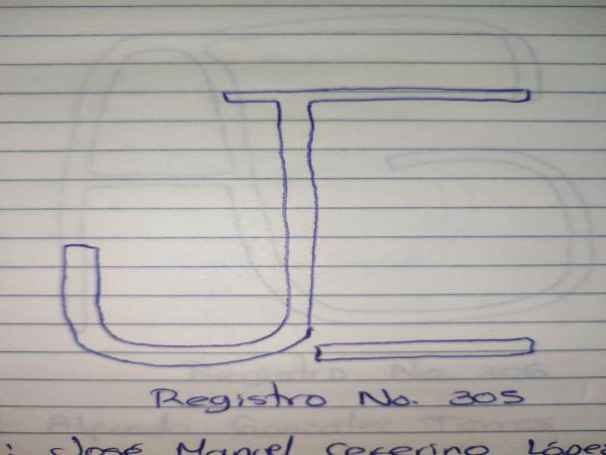 J
Registro No. 305
: José Manuel Ceferino López